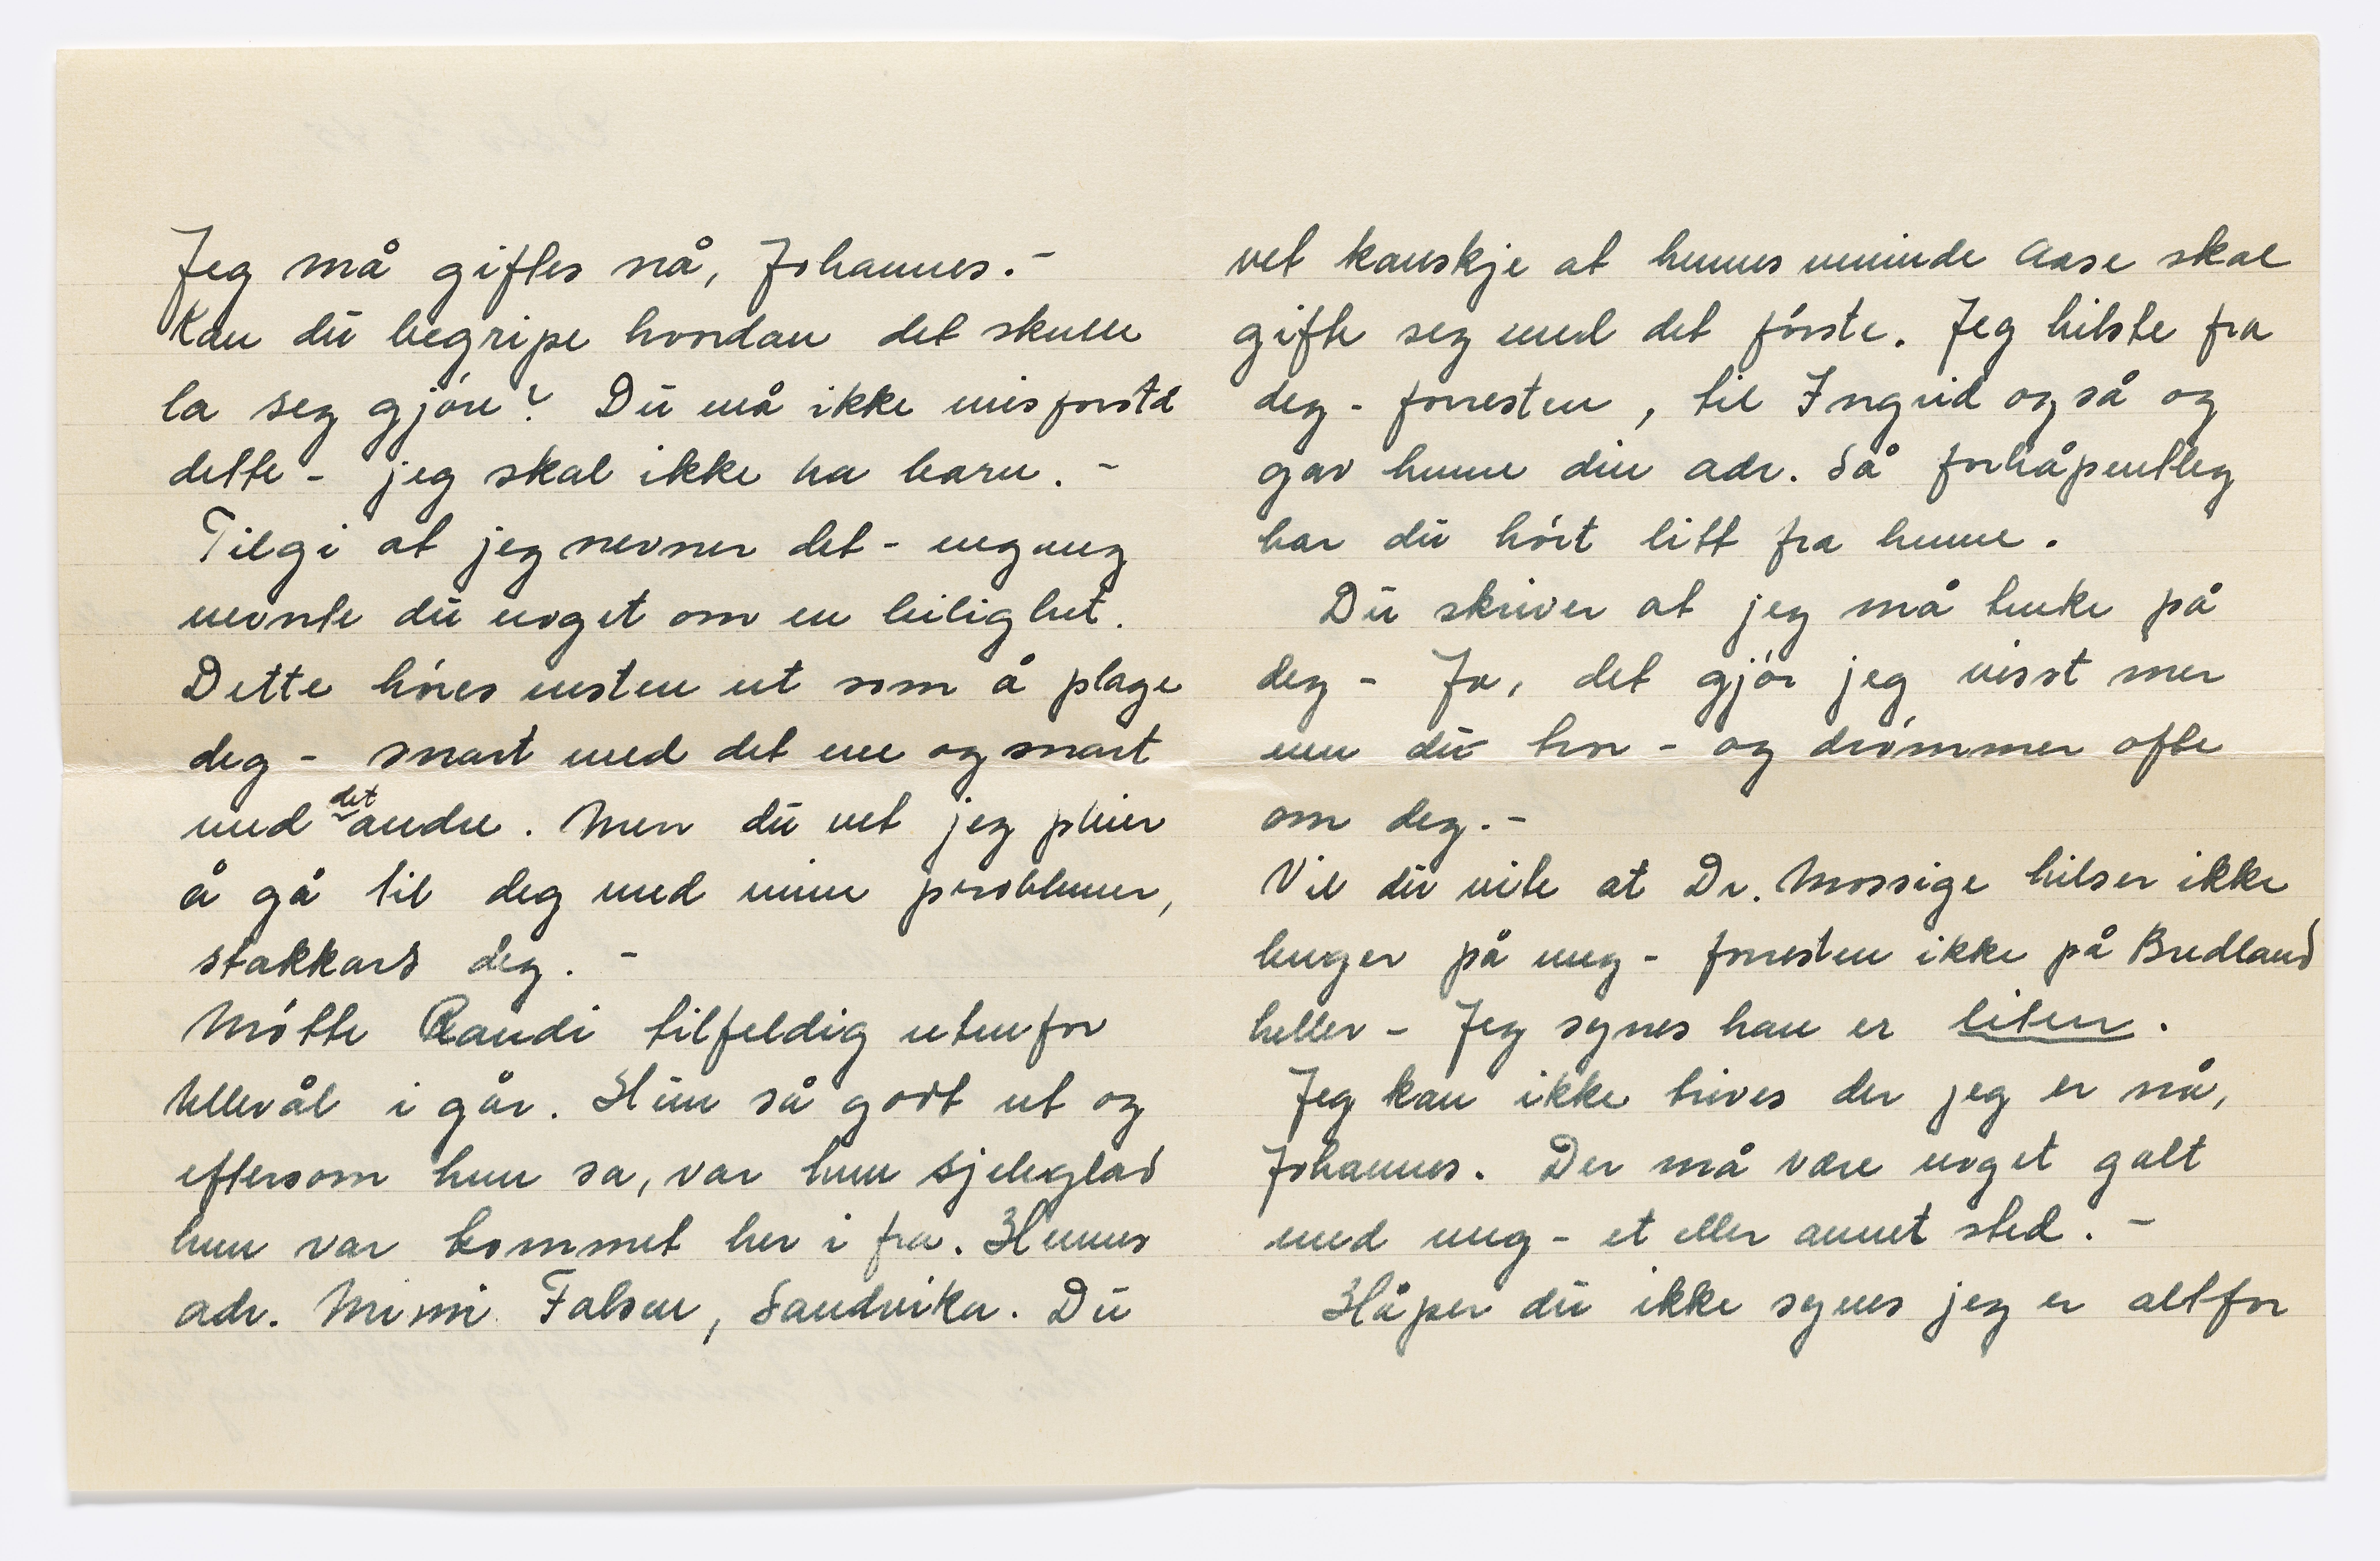 Jeg må giftes nå, Johannes. -
Kan du begripe hvordan det skulle
la seg gjøre? Du må ikke misforstå
dette - jeg skal ikke ha barn. -
Tilgi at jeg nevner det - engang
nevnte du noget om en leilighet.
Dette høres nesten ut som å plage
deg - snart med det ene og snart
med det andre. Men du vet jeg pleier
å gå til deg med mine problemer,
stakkars deg. -
Møtte Randi tilfeldig utenfor
Ullevål i går. Hun så godt ut og
eftersom hun sa, var hun sjeleglad
hun var kommet her i fra. Hennes
adr. Mimi Falsen, Sandvika. Du
vet kanskje at hennes veninde Aase skal
gifte seg med det første. Jeg hilste fra
deg - forresten, til Ingrid også og
gav henne din adr. Så forhåpentleg
har du hørt litt fra henne.
Du skriver at jeg må tenke på
deg - Ja, det gjør jeg visst mer
enn du tror - og drømmer ofte
om deg. -
Vil du vite at Dr. Mossige hilser ikke
lenger på meg - forresten ikke på Bredland
heller - Jeg synes han er liten.
Jeg kan ikke trives der jeg er nå,
Johannes. Der må være noget galt
med meg - et eller annet sted. -
Håper du ikke synes jeg er altfor